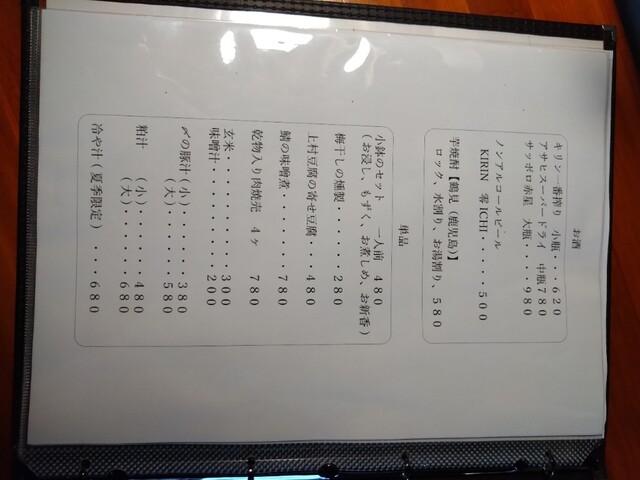 お酒
キリン一番搾り 小瓶・・・620
アサヒスーパードライ 中瓶780
サッポロ赤星 大瓶・・・980
ノンアルコールビール
KIRIN 零ICHI・・・・・500
芋焼酎【鶴見（鹿児島）】
ロック、水割り、お湯割り、580
単品
小鉢のセット 一人前 480
（お浸し、もずく、お煮しめ、お新香）
梅干しの燻製・・・・・・280
上村豆腐の寄せ豆腐・・・480
鯖の味噌煮・・・・・・・780
乾物入り肉焼売 4ヶ 780
玄米・・・・・・・・・・300
味噌汁・・・・・・・・・200
〆の豚汁（小）・・・・・380
（大）・・・・・580
粕汁 （小）・・・・・・480
（大）・・・・・・680
冷や汁（夏季限定）・・・680